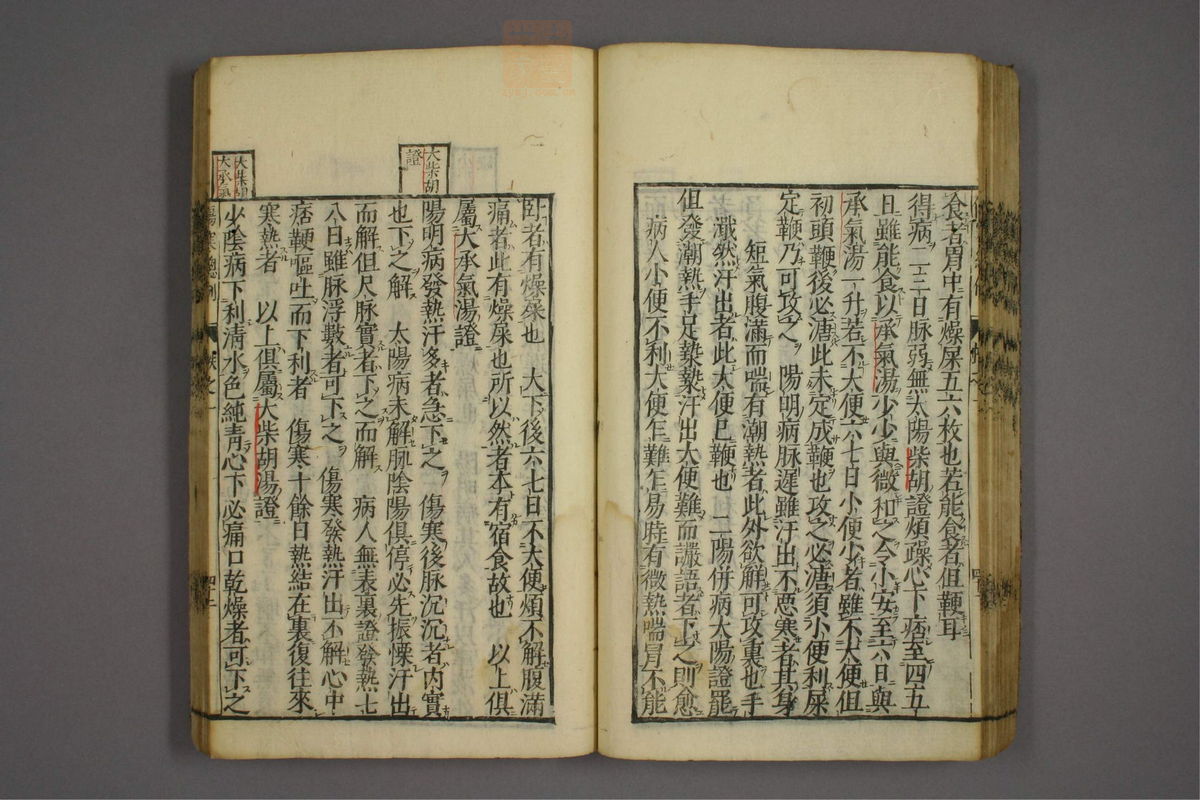 食者胃中有燥屎五六枚也若能食者但鞕耳
得病二三日脉弱無太陽柴胡證煩躁心下痞至四五
日雖能食以承氣湯少少與微和之令小安至六日與
承氣湯一升若不大便六七日小便少者雖不大便但
初頭鞕後必溏此未定成鞕也攻之必溏須小便利屎
定鞕乃可攻之　陽明病脉遲雖汗出不惡寒者其身
短氣腹滿而喘有潮熱者此外欲解可攻裏也手
濈然汗出者此大便已鞕也　二陽併病太陽證罷
但發潮熱手足漐漐汗出大便難而讝語者下之則愈
病人小便不利大便乍難乍易時有微熱喘冒不能
臥者有燥屎也　大下後六七日不大便煩不解腹滿
痛者此有燥屎也所以然者本有宿食故也　以上俱
屬大承氣湯證
大柴胡
證
陽明病發熱汗多者急下之　傷寒後脉沉沉者内實
也下之解　太陽病未解脉陰陽俱停必先振慄汗出
而解但尺脉實者下之而解　病人無表裏證發熱七
八日雖脉浮數者可下之　傷寒發熱汗出不解心中
痞鞕嘔吐而下利者　傷寒十餘日熱結在裏復往來
寒熱者　以上俱屬大柴胡湯證
大柴胡
大承氣
少陰病下利淸水色純青心下必痛口乾燥者可下之
四十二